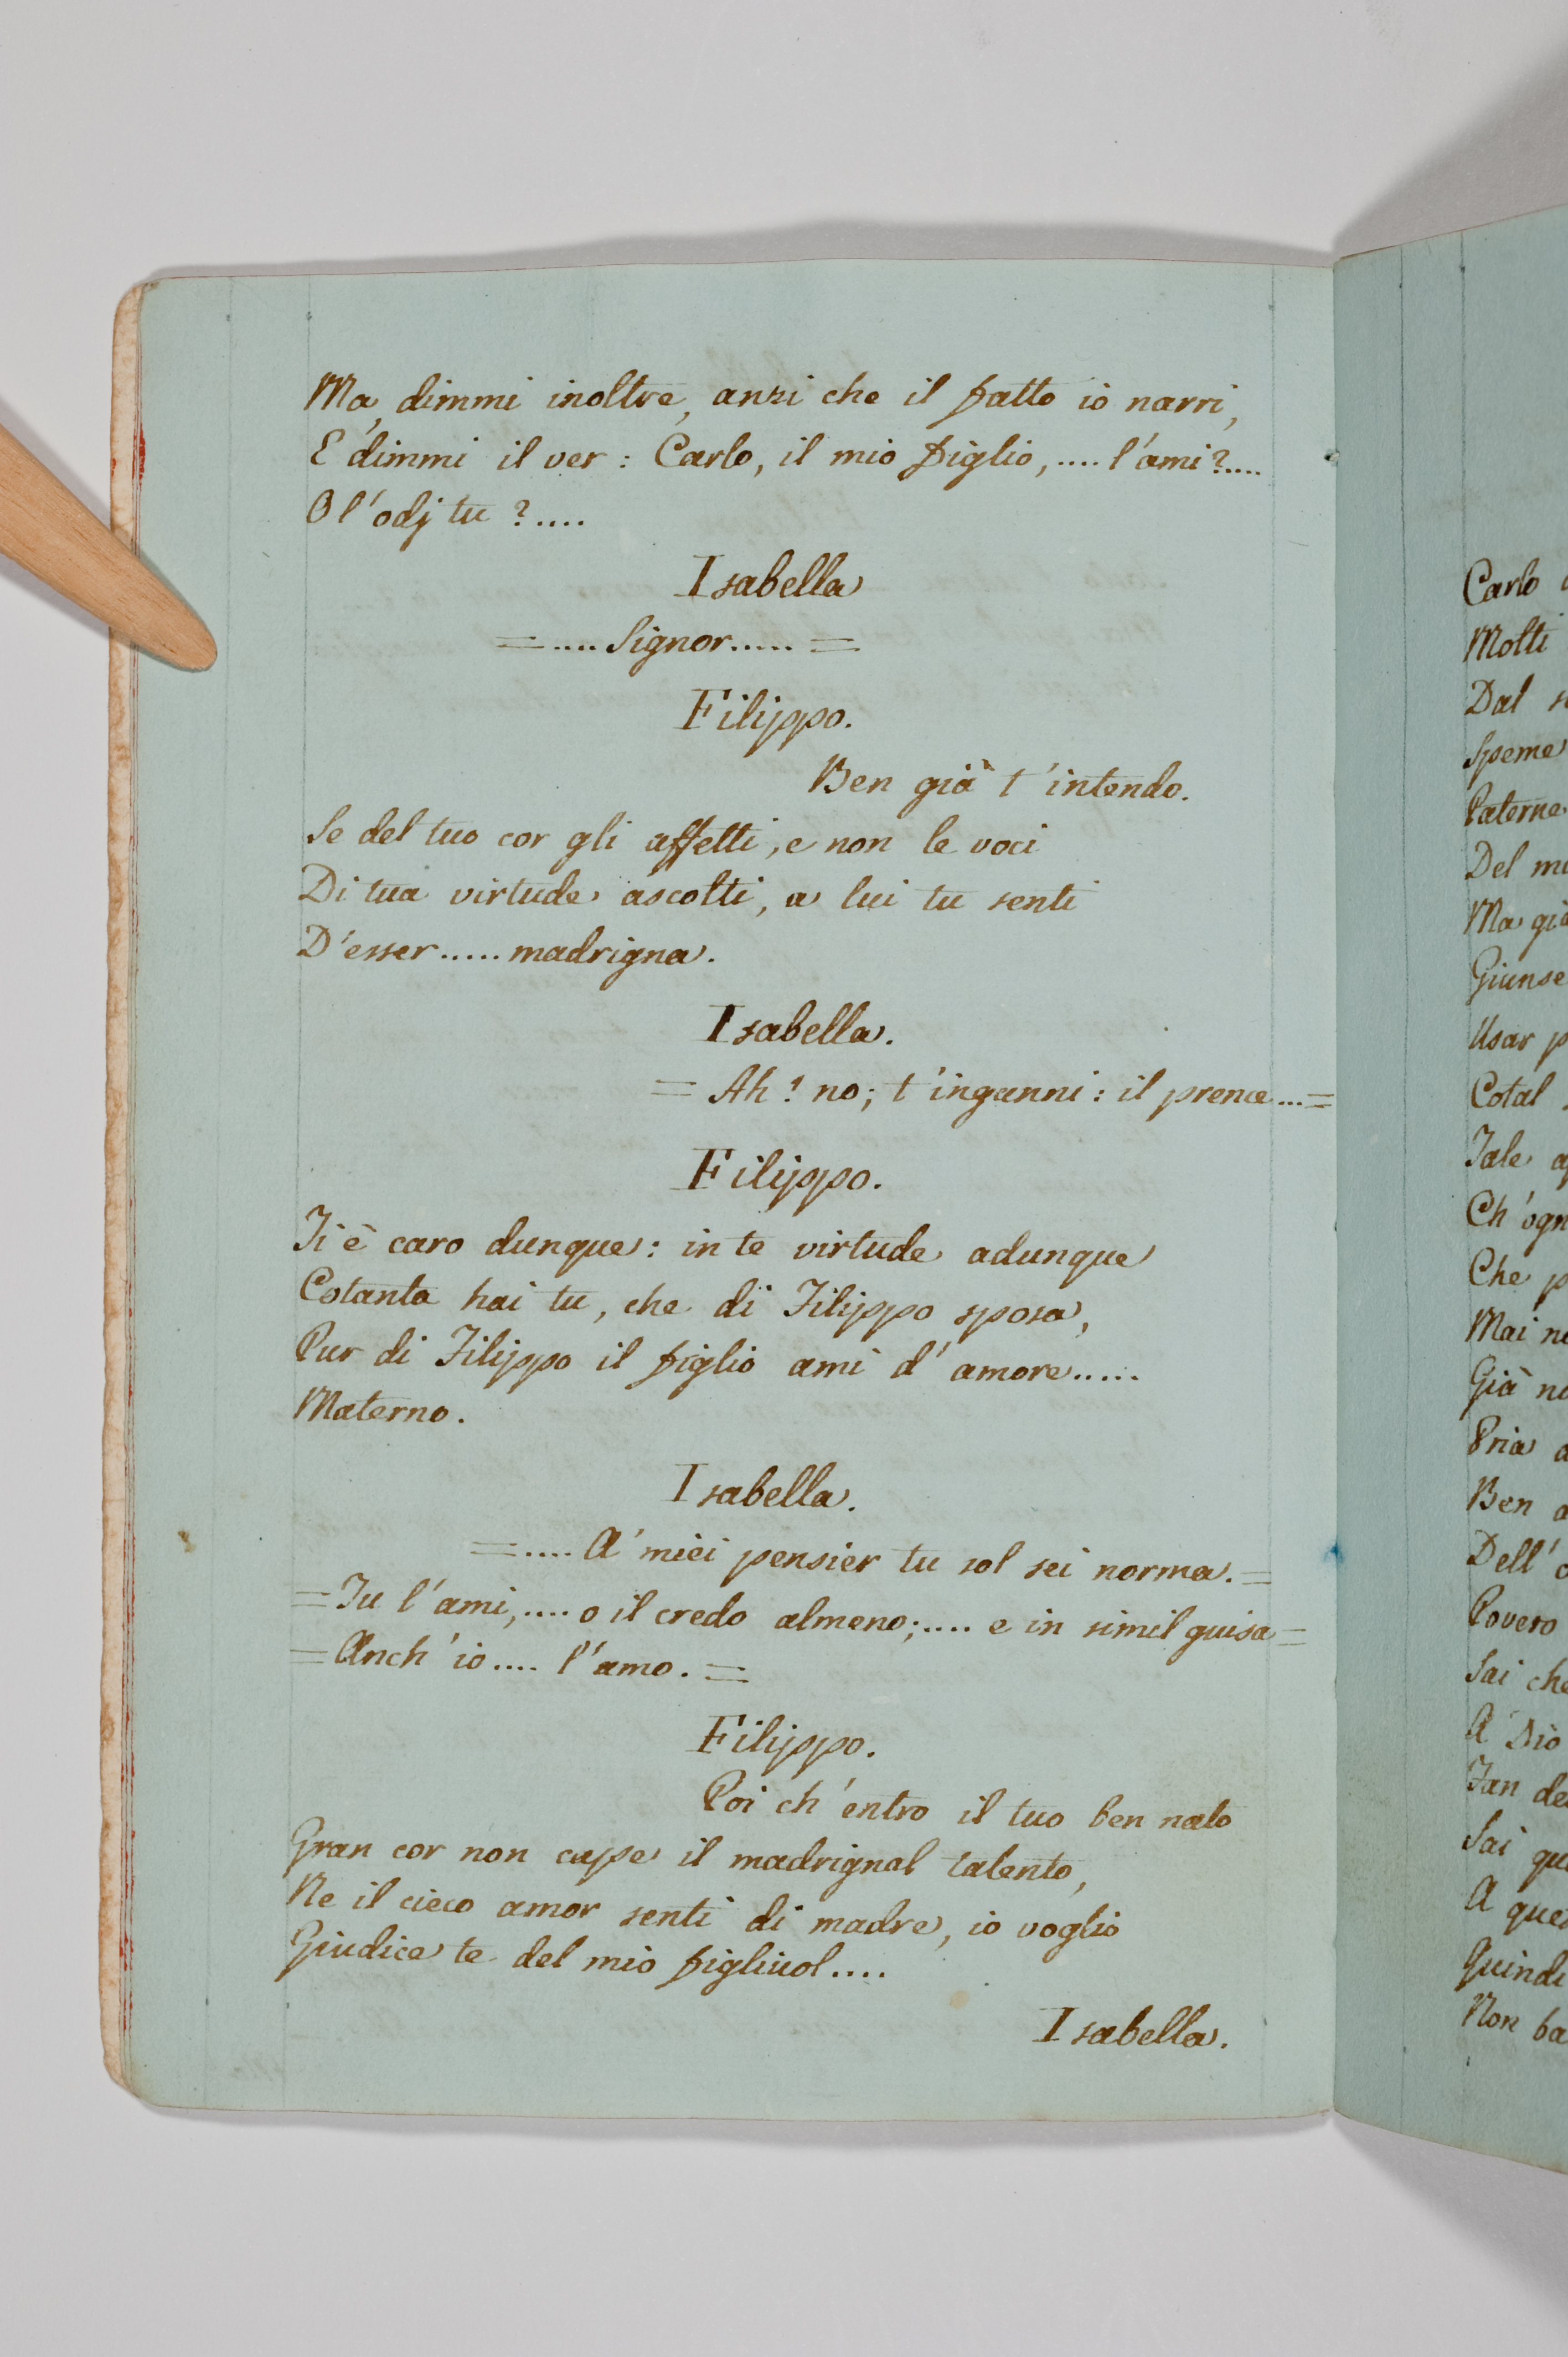 Ma dimmi inoltre, anzi che il fatto io narri,
E dimmi il ver: Carlo, il mio figlio, .... l'ami?....
O l'odj tu ?....
Isabella
= .... Signor..... =
Filippo.
Ben già t'intendo.
Se del tuo cor gli affetti, e non le voci
Di tua virtude ascolti, a lui tu senti
D'esser ..... madrigna.
Isabella.
= Ah! no; t'inganni: il prence... =
Filippo.
Ti è caro dunque: in te virtude adunque
Cotanta hai tu, che di Filippo sposa,
Pur di Filippo il figlio ami d'amore.....
Materno.
Isabella.
= .... A' miei pensier tu sol sei norma. =
= Tu l'ami, .... o il credo almeno; .... e in simil guisa =
= Anch'io .... l'amo. =
Filippo.
Poi ch'entro il tuo ben nato
Gran cor non cape il madrignal talento,
Ne il cieco amor senti di madre, io voglio
Giudice te del mio figliuol....
Isabella.
Carlo
Molti
Dal
Speme
Paterne
Del
Ma già
Giunse
Usar
Cotal
Tale
Ch'ogn
Che
Mai
Già
Pria
Ben
Dell'
Povero
Sai che
A Dio
Fan
Sai
A
Quindi
Non